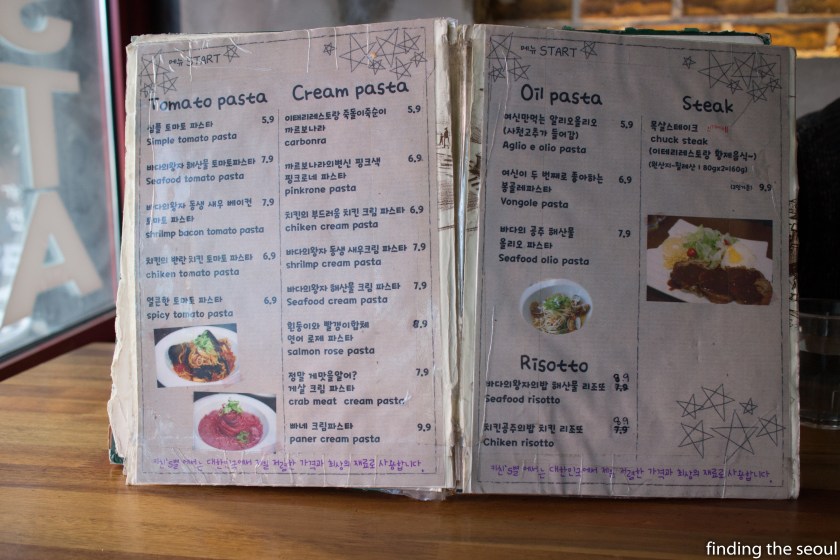 메뉴 START
Tomato pasta
심플 토마토 파스타 5,9
Simple tomato pasta
바다의왕자 해산물 토마토파스타 7,9
Seafood tomato pasta
바다의왕자 동생 새우 베이컨 7,9
토마토 파스타
shrilmp bacon tomato pasta
치킨의 반란 치킨 토마토 파스타 6,9
chiken tomato pasta
얼큰한 토마토 파스타 6,9
spicy tomato pasta
Cream pasta
이태리레스토랑 죽돌이죽순이 5,9
까르보나라
carbonra
까르보나라의변신 핑크색 6,9
핑크로네 파스타
pinkrone pasta
치킨의 부드러움 치킨 크림 파스타 6,9
chiken cream pasta
바다의왕자 동생 새우크림 파스타 7,9
shrilmp cream pasta
바다의왕자 해산물 크림 파스타 7,9
Seafood cream pasta
흰둥이와 빨갱이합체 8,9
연어 로제 파스타
salmon rose pasta
정말 게맛을알어? 7,9
게살 크림 파스타
crab meat cream pasta
빠네 크림파스타 9,9
paner cream pasta
대한민국에서 제일 저렴한 가격과 최상의 재료로 사용합니다.
메뉴 START
Oil pasta
여신만먹는 알리오올리오 5,9
(사천고추가 들어감)
Aglio e olio pasta
여신이 두 번째로 좋아하는 6,9
봉골레파스타
Vongole pasta
바다의 공주 해산물 7,9
올리오 파스타
Seafood olio pasta
Risotto
바다의왕자의밥 해산물 리조또 8,9 7,9
Seafood risotto
치킨공주의밥 치킨 리조또 8,9 7,9
Chiken risotto
Steak
목살스테이크
chuck steak
(이태리레스토랑 황제음식~)
9,9
대한민국에서 제일 저렴한 가격과 최상의 재료로 사용합니다.
STA
finding the seoul